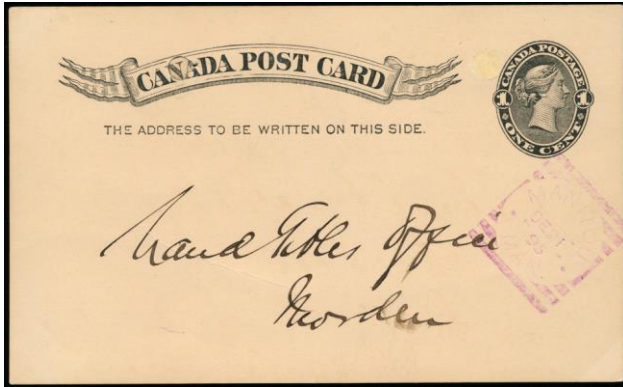 CANADA POST CARD
CANADA POSTAGE
1 1
ONE CENT
THE ADDRESS TO BE WRITTEN ON THIS SIDE.
Land Titles Office
Morden